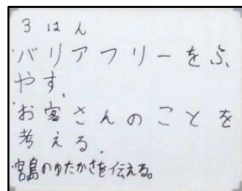 3はん
・バリアフリーをふ
やす。
・お客さんのことを
考える。
・宮島のゆたかさを伝える。